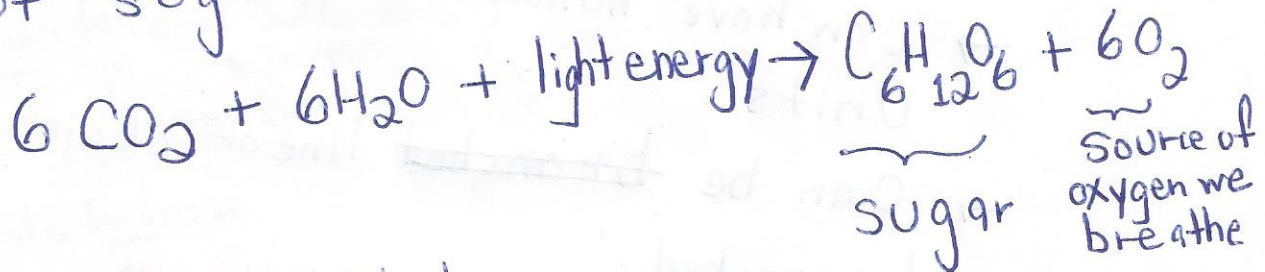 6 CO2 + 6H2O + light energy → C6H12O6 + 6O2
sugar
source of
oxygen we
breathe